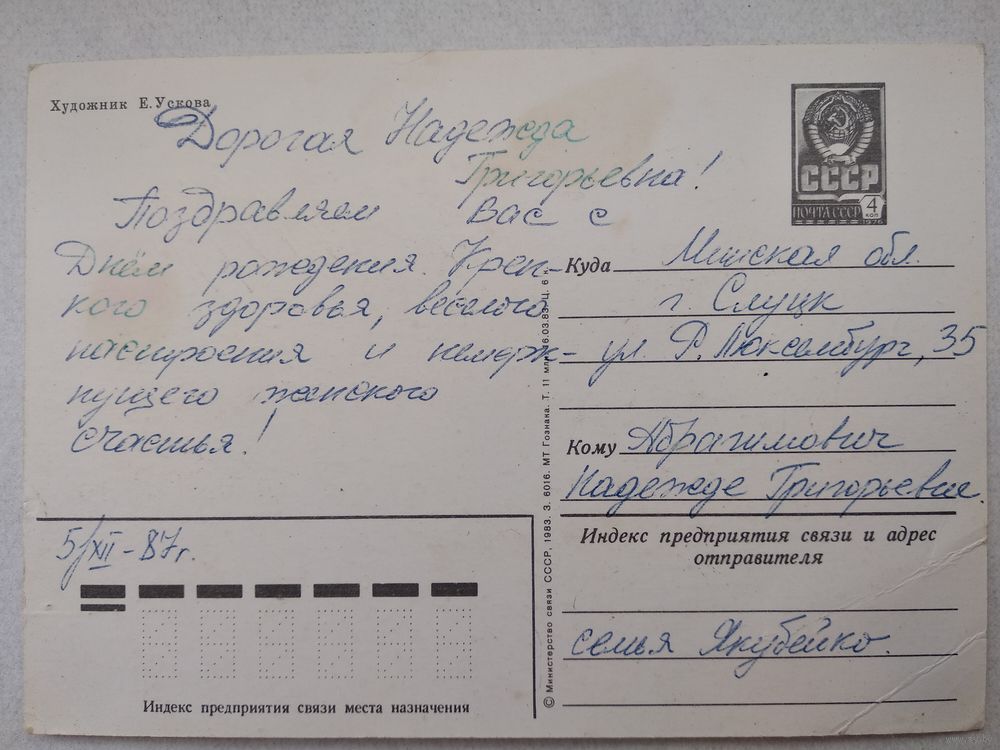 Художник Е. Ускова
Дорогая Надежда
Григорьевна!
Поздравляем Вас с
Днём рождения. Креп-
кого здоровья, веселого
настроения и немерк-
нущего женского
счастья!
5/XII-87г.
Индекс предприятия связи места назначения
© Министерство связи СССР, 1983. З. 6016. МТ Гознака. Т. 11 млн. 16.03.83. Ц. 6 к.
СССР
ПОЧТА СССР
4
КОП
1976
Куда Минская обл.
г. Слуцк
ул. Р. Люксембург, 35
Кому Абрагимович
Надежде Григорьевне.
Индекс предприятия связи и адрес
отправителя
семья Якубейко.